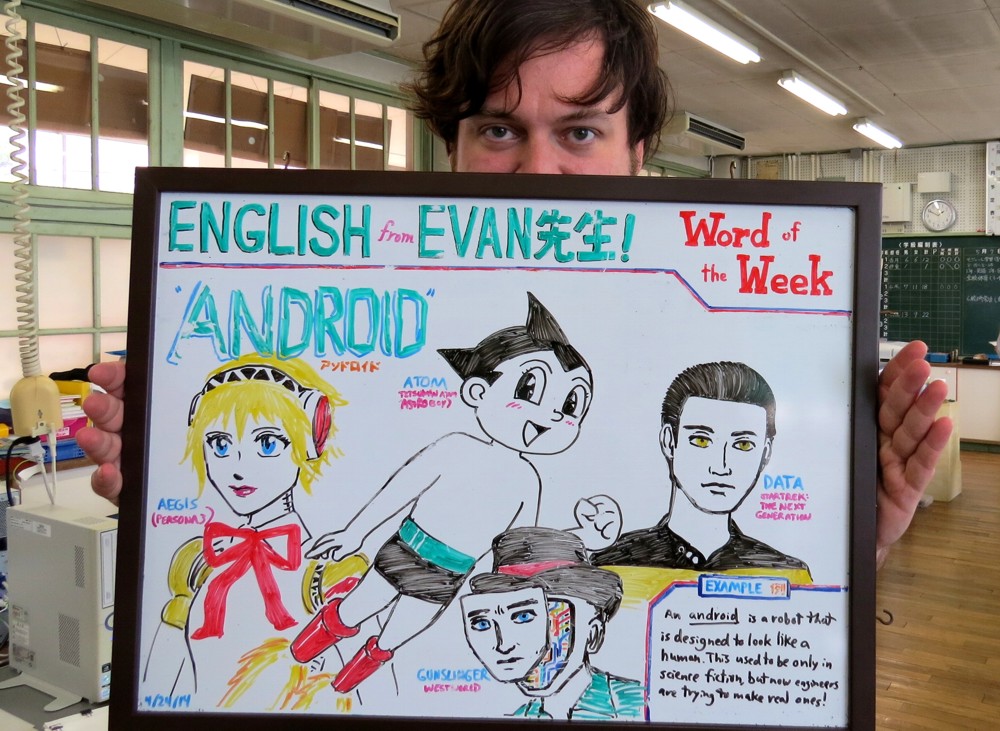 ENGLISH from EVAN先生!
Word of
the Week
"ANDROID"
アンドロイド
ATOM
ASTRO BOY)
AEGIS
(PERSONA 3)
DATA
STAR TREK:
THE NEXT
GENERATION
GUNSLINGER
WESTWORLD
EXAMPLE 例
An android is a robot that
is designed to look like a
human. This used to be only in
science fiction, but now engineers
are trying to make real ones!
4/24/14